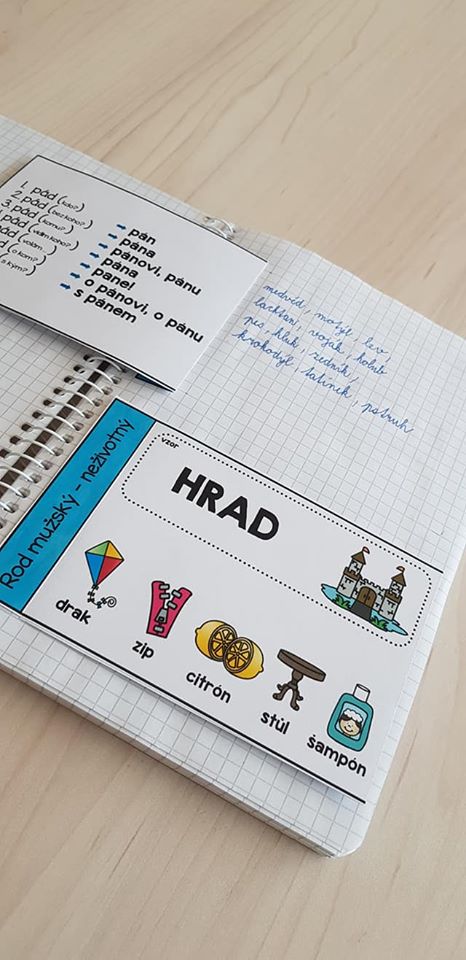 1. pád (kdo?)
2. pád (bez koho?)
3. pád (komu?)
pád (vidím koho?)
pád (volám...)
(o kom?)
(s kým?)
pán
pána
pánovi, pánu
pána
pane!
o pánovi, o pánu
s pánem
medvěd, motýl, lev,
lachtan, voják, holub
pes, kluk, zedník,
krokodýl, tatínek, pstruh
Rod mužský - neživotný
vzor
HRAD
drak
zip
citrón
stůl
šampón